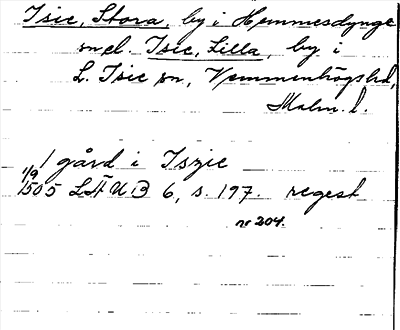 Isie, Stora, by i Hemmesdynge
sn el. Isie, Lilla, by i
L. Isie sn, Vemmenhögshd,
Malm. l.
1 gård i Iszie
1/9 1505 LÄUB 6, s. 197. regest
nr 204.